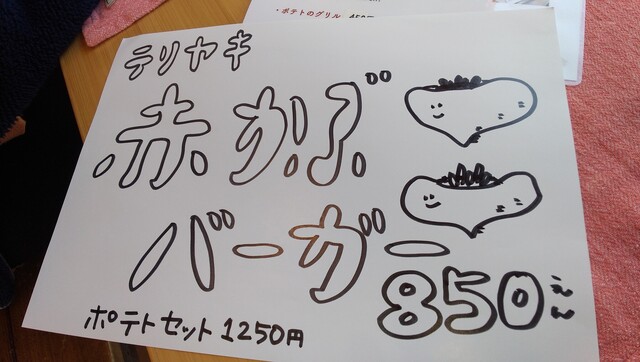 ・ポテトのグリル 450円
テリヤキ
赤かぶ
バーガー
850えん
ポテトセット 1250円